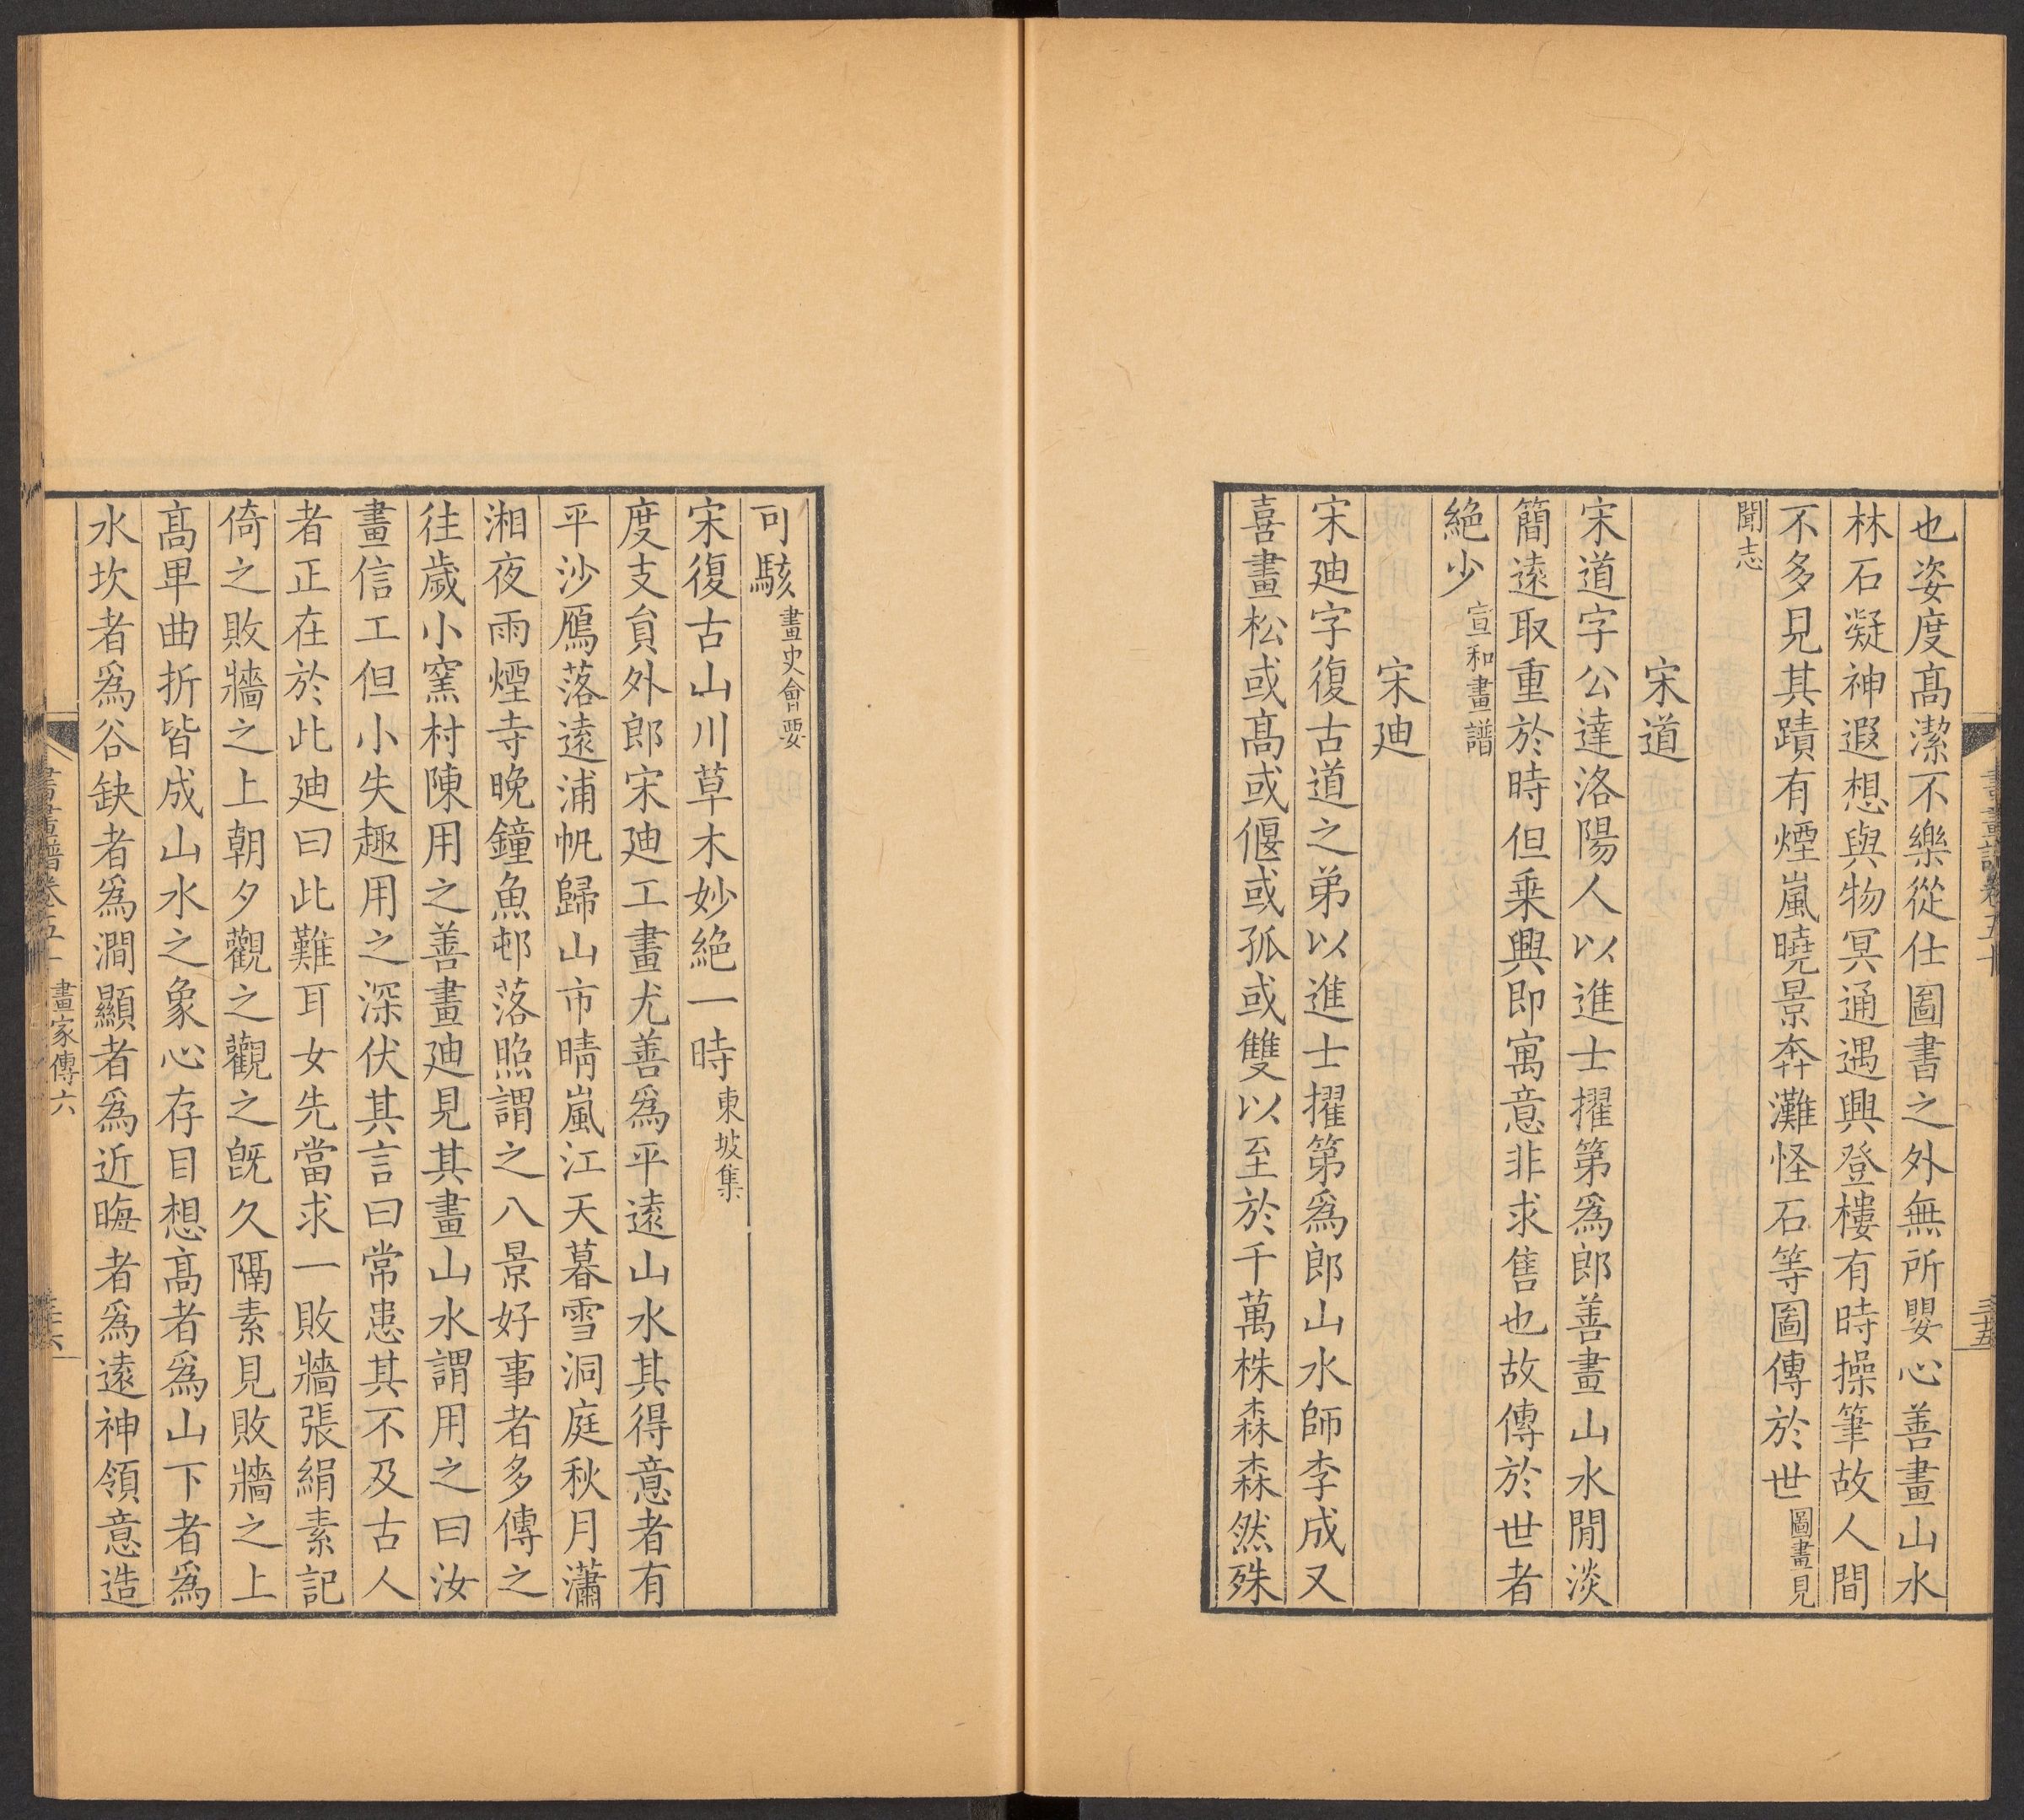 也姿度髙潔不樂從仕圖書之外無所嬰心善畫山水
林石凝神遐想與物冥通遇興登樓有時操筆故人間
不多見其蹟有煙嵐曉景奔灘怪石等圖傳於世圖畫見
聞志
宋道
宋道字公達洛陽人以進士擢第爲郎善畫山水閒淡
簡遠取重於時但乗興即寓意非求售也故傳於世者
絶少宣和畫譜
宋廸
宋廸字復古道之弟以進士擢第爲郎山水師李成又
喜畫松或髙或偃或孤或雙以至於千萬株森森然殊
可駭畫史會要
宋復古山川草木妙絶一時東坡集
度支貟外郎宋廸工畫尤善爲平遠山水其得意者有
平沙鴈落遠浦帆歸山市晴嵐江天暮雪洞庭秋月瀟
湘夜雨煙寺晚鐘魚邨落照謂之八景好事者多傳之
往歲小窯村陳用之善畫廸見其畫山水謂用之曰汝
畫信工但小失趣用之深伏其言曰常患其不及古人
者正在於此廸曰此難耳女先當求一敗牆張絹素記
倚之敗牆之上朝夕觀之觀之旣久隔素見敗牆之上
髙畀曲折皆成山水之象心存目想髙者爲山下者爲
水坎者爲谷缺者爲澗顯者爲近晦者爲遠神領意造
書畫譜卷五十
畫家傳六
三十六